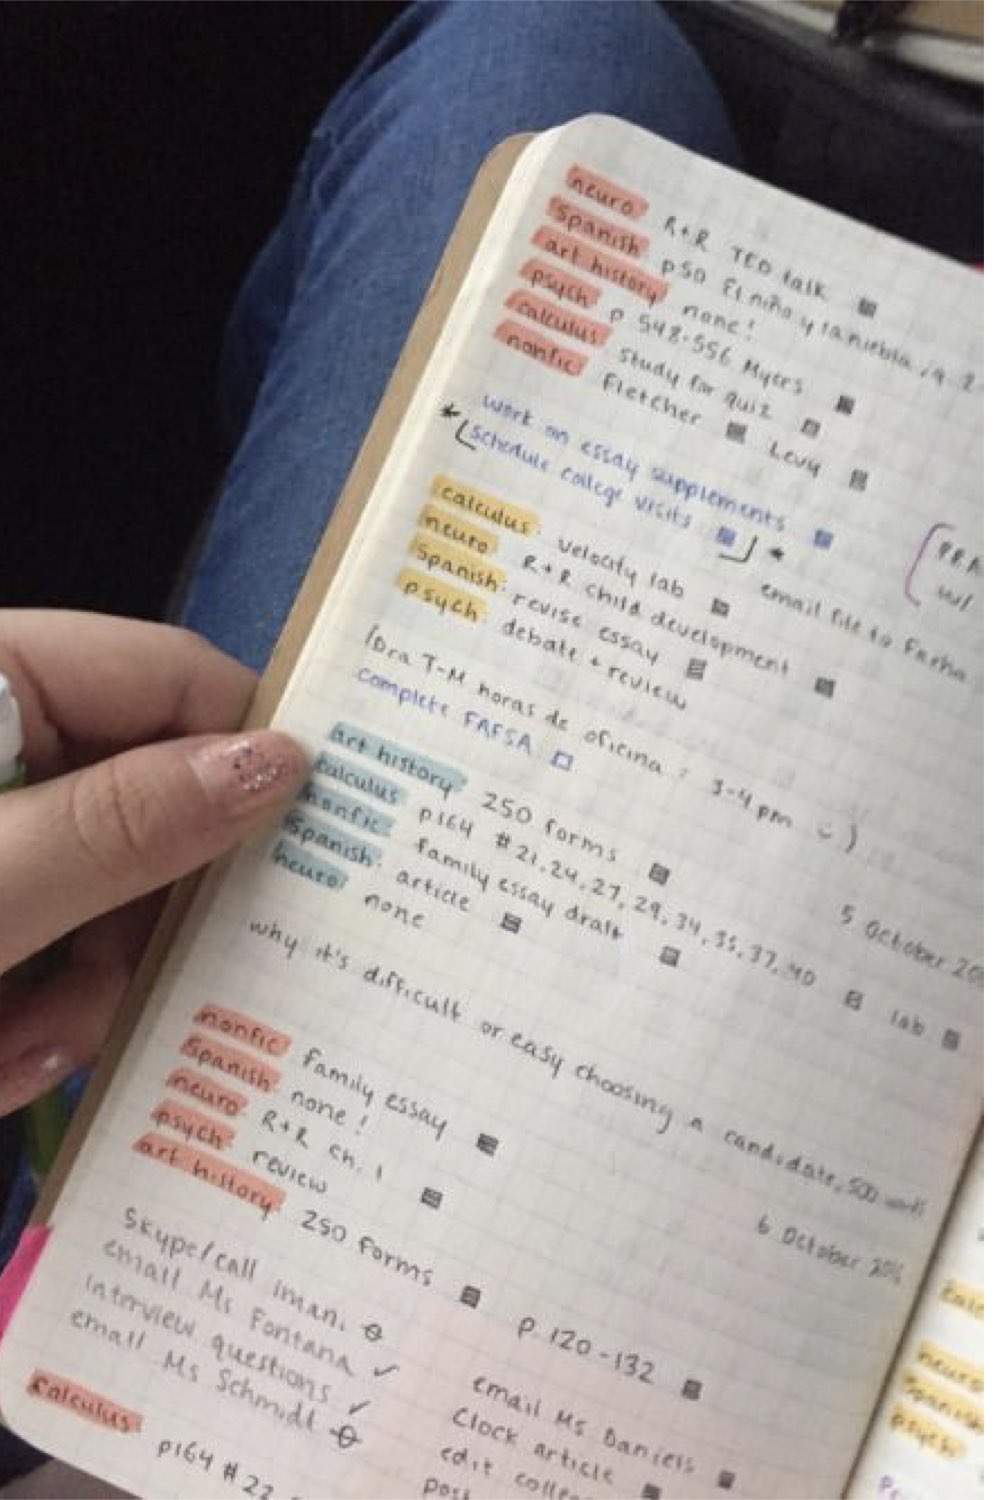 neuro R+R TED talk
Spanish p50 El niño y la niebla, q 2-
art history none!
psych p 548-556 Myers
calculus study for quiz
nonfic Fletcher Levy
work on essay supplements
schedule college visits
email file to Farha
PRA
w/
calculus: velocity lab
neuro R+R child development
Spanish: revise essay
psych debate + review
(Dra T-M horas de oficina: 3-4 pm :)
complete FAFSA
5 October
art history 250 forms
calculus p164 #21, 24, 27, 29, 34, 35, 37, 40 lab
nonfic family essay draft
Spanish: article
neuro: none
why it's difficult or easy choosing a candidate, 500 words
6 October
nonfic family essay
Spanish: none!
neuro R+R ch. 1
psych: review
art history 250 forms p. 120-132
Skype/call Imani
email Ms Fontana
interview questions
email Ms Schmidt
email Ms Daniels
Clock article
edit
post
calculus p164 #22
calc
neuro
Spanish
psych